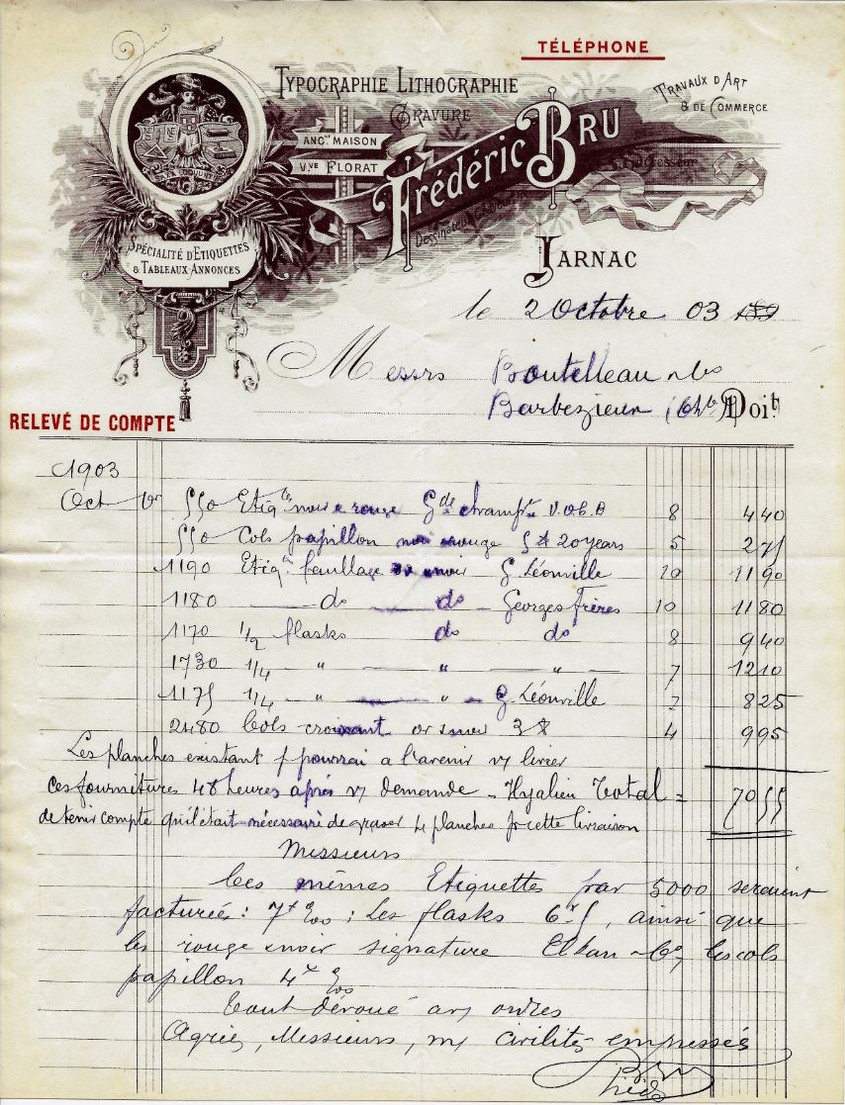 TÉLÉPHONE
TYPOGRAPHIE LITHOGRAPHIE
GRAVURE
TRAVAUX D'ART
& DE COMMERCE
ANC.ne MAISON
Vve FLORAT
Frédéric BRU
Successeur
Dessinateur Graveur
SPÉCIALITÉ D'ÉTIQUETTES
& TABLEAUX-ANNONCES
JARNAC
le 2 Octobre 03 189
Messrs Boutelleau & Co
Barbezieux (Chte) Doit
RELEVÉ DE COMPTE
1903
Oct 1er 550 Etiqtes noir & rouge Gde champe V.O.C.B 8 4 40
550 Cols papillon noir rouge 5 * 20 years 5 2 75
1190 Etiqs feuillage or noir G. Léonville 10 11 90
1180 — do — do — Georges frères 10 11 80
1170 1/2 flasks do do 8 9 40
1730 1/4 — " — " — " — 7 12 10
1175 1/4 — " — " — G. Léonville 7 8 25
2480 Cols croissant or & noir 3 * 4 9 95
Les planches existant je pourrai a l'avenir vs livrer
ces fournitures 48 heures après vs demande - Total = 70 55
de tenir compte qu'il était nécessaire de graver 4 planches pr cette livraison
Messieurs
Ces mêmes Etiquettes par 5000 seraient
facturées : 7f %00 ; Les flasks 6f 5, ainsi que
les rouge & noir signature & Co, les cols
papillon 4f %00
Tout dévoué a vs ordres
Agréez, Messieurs, ms civilités empressées